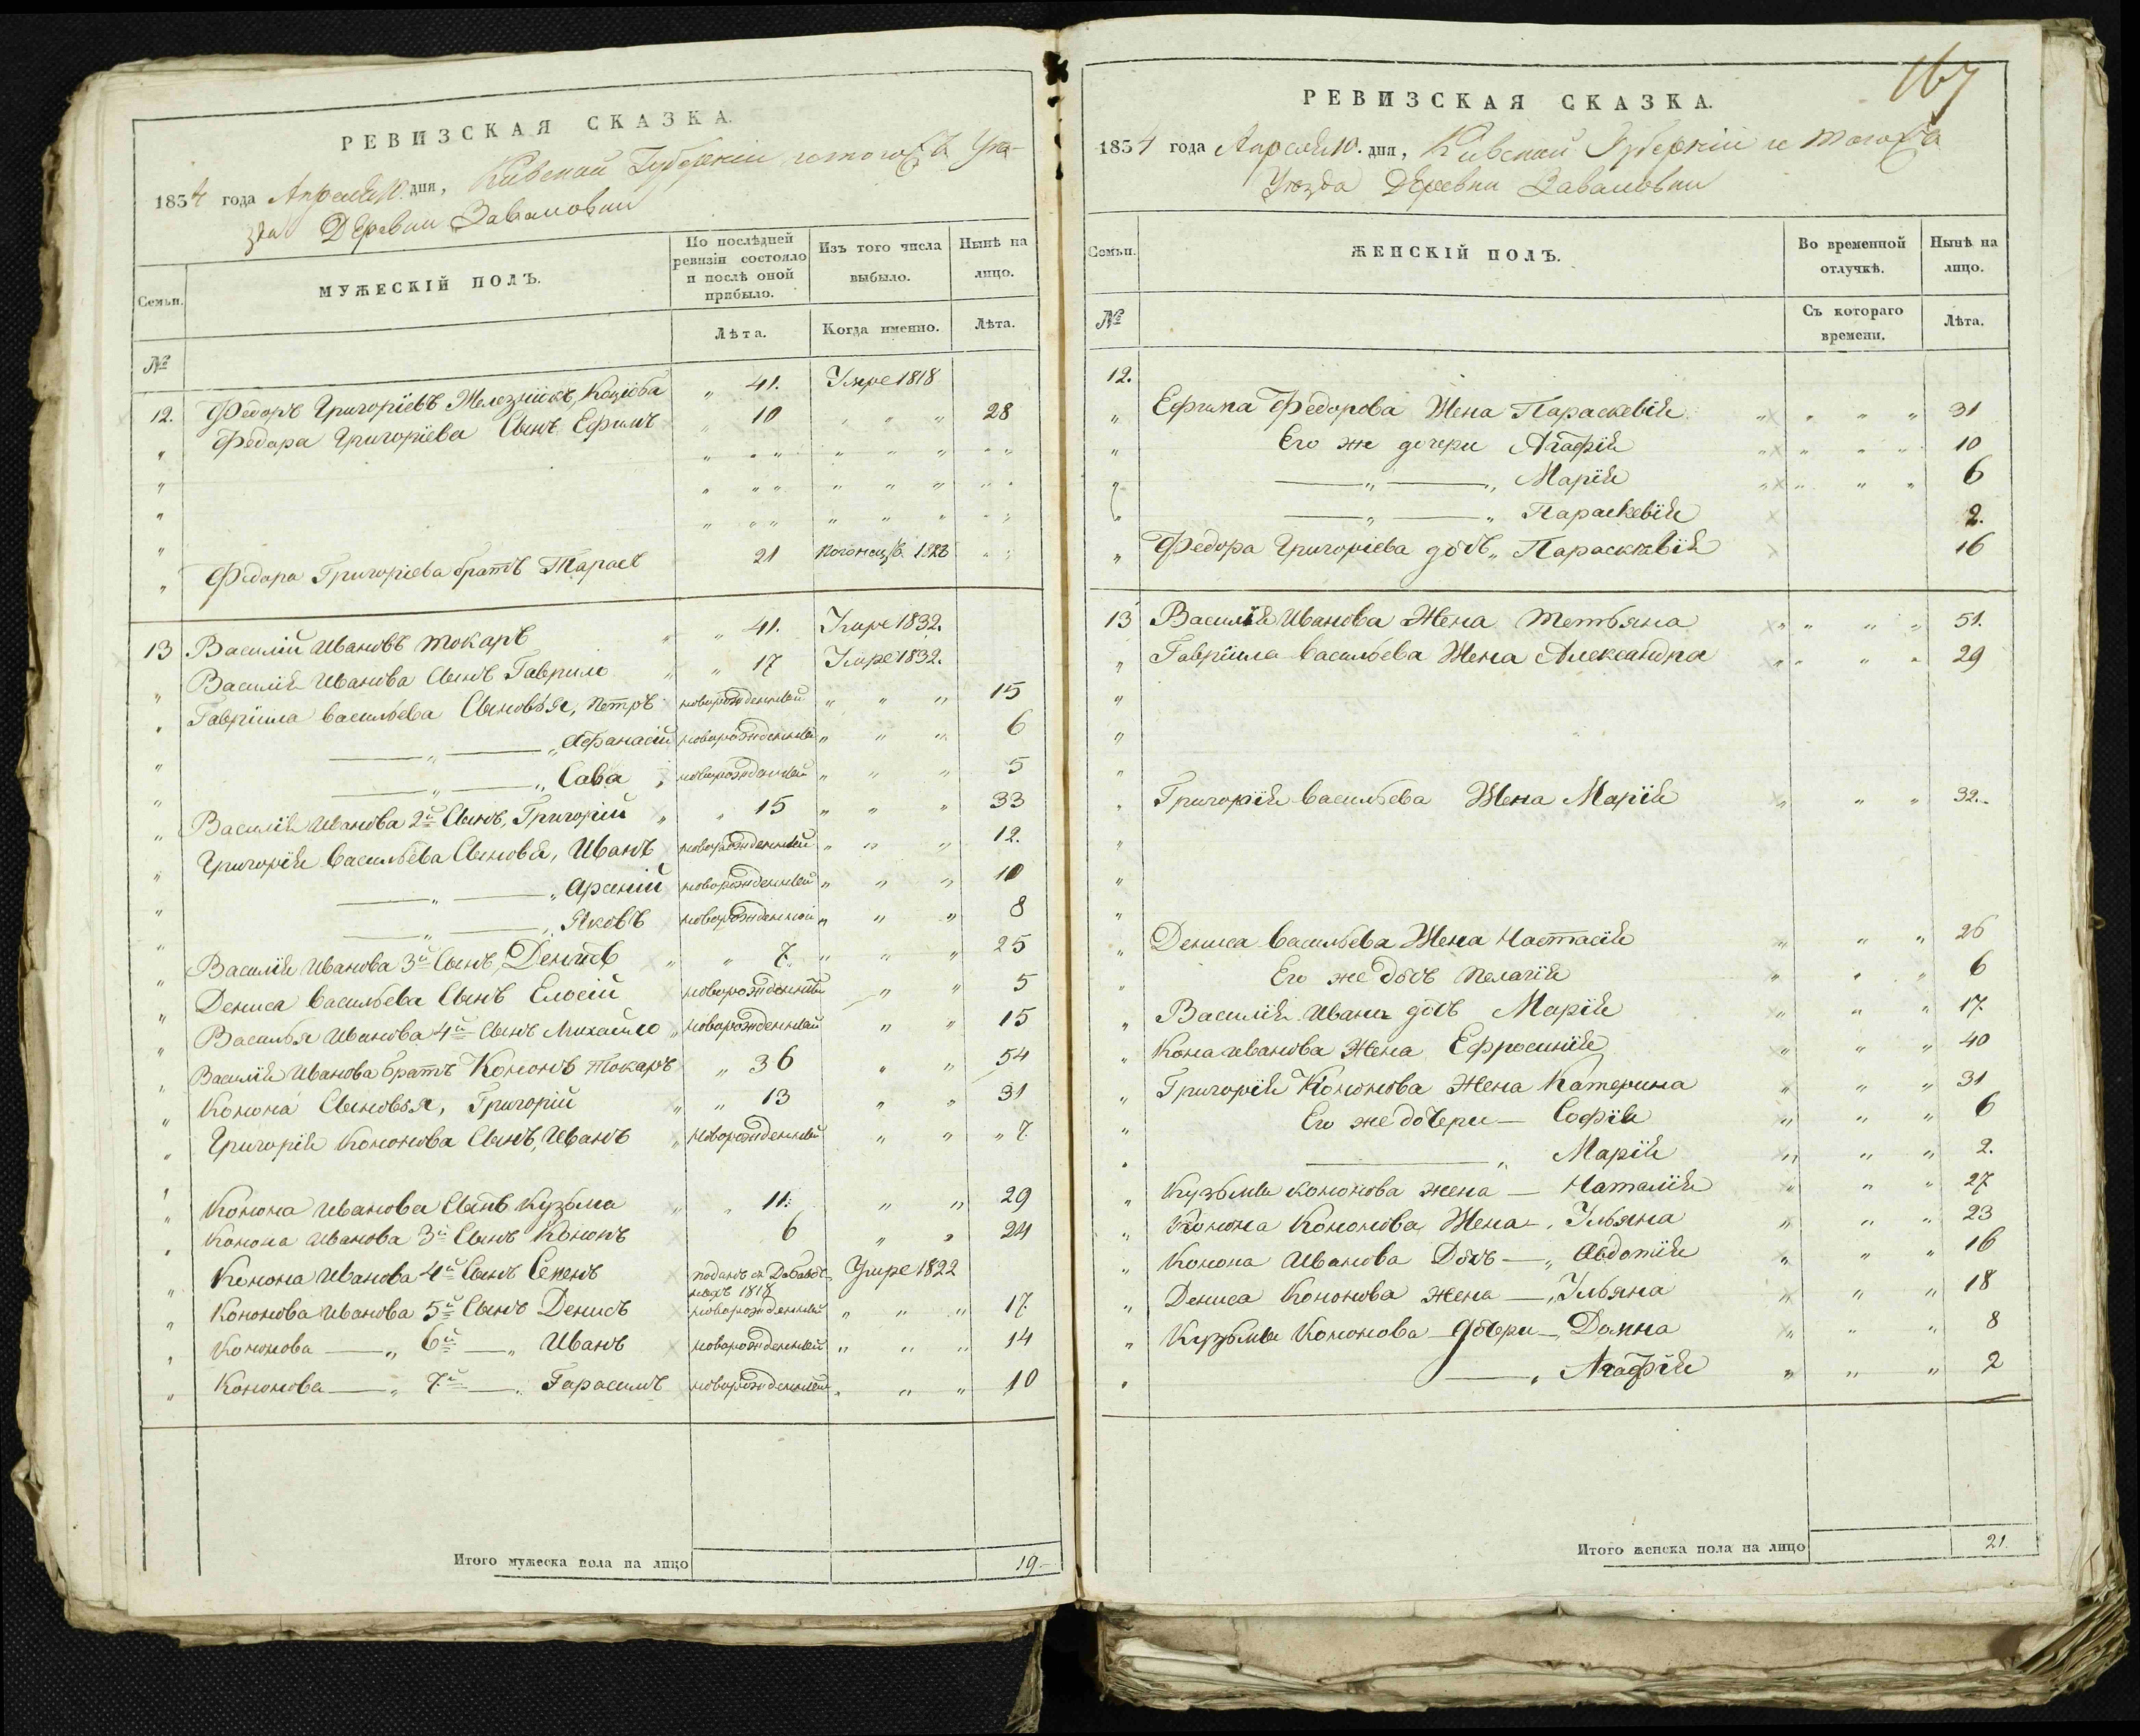 РЕВИЗСКАЯ СКАЗКА.
1834 года Апреля 10. дня, Киевской Губернии и тогожъ Уѣ-
зда Деревни Заваловки
Семьи. МУЖЕСКІЙ ПОЛЪ. По послѣдней ревизіи состояло и послѣ оной прибыло. Изъ того числа выбыло. Нынѣ на лицо.
№ Лѣта. Когда именно. Лѣта.
12. Федоръ Григоріевъ Железнякъ, " 41. Умре 1818
" Федора Григоріева Сынъ Ефимъ " 10 " " " 28
" Федора Григоріева братъ Тарасъ 21 1828 " "
13 Василій Ивановъ Токаръ " " 41. Умре 1832.
" Василія Иванова Сынъ Гаврило " " 17 Умре 1832.
" Гавріила Васильева Сыновья, Петръ новорожденный " " " 15
" —— " —— " Афанасій новорожденный " " " 6
" —— " —— " Сава новорожденный " " " 5
" Василія Иванова 2й Сынъ, Григорій " " 15 " " " 33
" Григорія Васильева Сыновья, Иванъ новорожденный " " " 12.
" —— " —— " Арсеній новорожденный " " " 10
" —— " —— " Яковъ новорожденной " " " 8
" Василія Иванова 3й Сынъ, Денисъ " " 7. " " " 25
" Дениса Васильева Сынъ Елосій новорожденный " " 5
" Василья Иванова 4й Сынъ Михайло " новорожденный " " 15
" Василія Иванова братъ Кононъ Токаръ " 36 " " 54
" Конона Сыновья, Григорій " " 13 " " 31
" Григорія Кононова Сынъ, Иванъ " новорожденный " " " 7.
" Конона Иванова Сынъ Кузьма " " 11. " " 29
" Конона Иванова 3й Сынъ Кононъ 6 " " 24
" Конона Иванова 4й Сынъ Семенъ поданъ 1818 Умре 1822
" Кононова Иванова 5й Сынъ Денисъ новорожденный " " " 17.
" Кононова —— " 6й —— " Иванъ новорожденный " " " 14
" Кононова —— " 7.й —— " Гарасимъ новорожденный " " " 10
Итого мужеска пола на лицо 19.
167
РЕВИЗСКАЯ СКАЗКА.
1834 года Апреля 10. дня, Киевской Губерніи и тогожъ
Уѣзда Деревни Заваловки
Семьи. ЖЕНСКІЙ ПОЛЪ. Во временной отлучкѣ. Нынѣ на лицо.
№ Съ котораго времени. Лѣта.
12.
" Ефима Федорова Жена Параскевія " " " " 31
" Его же дочери Агафія " " " " 10
" —— " —— " Марія " " " " 6
" —— " —— " Параскевія 2.
" Федора Григоріева дочь " Параскевія 16
13 Василія Иванова Жена Тетьяна " " " " 51.
" Гавріила Васильева Жена Александра " " " " 29
" Григорія Васильева Жена Марія " " " 32.
" Дениса Васильева Жена Настасія " " " 26
" Его же дочь Пелагія " " " 6
" Василія Иванъ дочь Марія " " " 17.
" Кона Иванова Жена Ефросинія " " " 40
" Григорія Кононова Жена Катерина " " " 31
" Его же дочери — Софія " " " 6
" —— " Марія " " " 2.
" Кузьмы Кононова жена — Наталія " " " 27
" Конона Кононова Жена — " Ульяна " " " 23
" Конона Иванова Дочь — " Авдотія " " " 16
" Дениса Кононова жена — " Ульяна " " " 18
" Кузьмы Кононова дочери — Домна " " " 8
" —— " Агафія " " " 2
Итого женска пола на лицо 21.